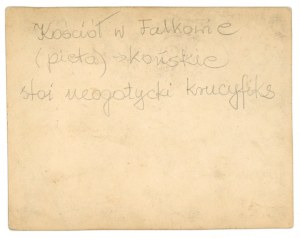 Kościół w Fałkowie
(pieta) - końskie
stoi neogotycki krucyfiks